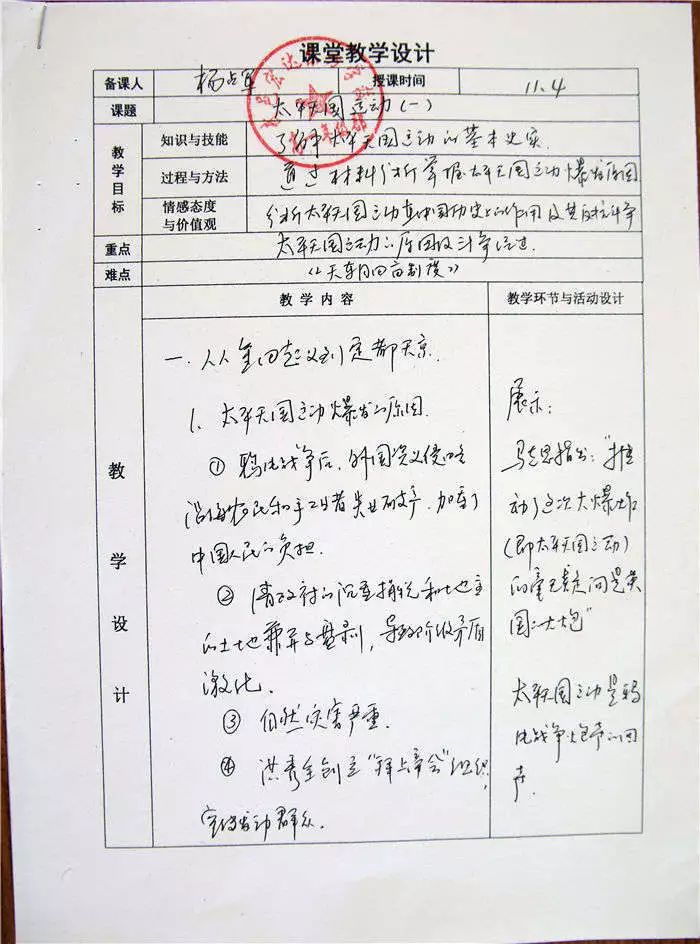 课堂教学设计
备课人 杨占军 授课时间 11.4
课题 太平天国运动(一)
教学目标
知识与技能 了解太平天国运动的基本史实
过程与方法 通过材料分析掌握太平天国运动爆发原因
情感态度与价值观 分析太平天国运动在中国历史上的作用及其反抗斗争
重点 太平天国运动的原因及斗争经过.
难点 《天朝田亩制度》
教学内容 教学环节与活动设计
教学设计
一. 从金田起义到定都天京.
1. 太平天国运动爆发的原因.
① 鸦片战争后,外国资义侵略
沿海农民和手工业者失业破产,加重了
中国人民的负担.
② 清政府的沉重捐税和地主
的土地兼并与盘剥,导致阶级矛盾
激化.
③ 自然灾害严重.
④ 洪秀全创立“拜上帝会”组织,
宣传发动群众.
展示:
马克思指出:“推
动了这次大爆炸
(即太平天国运动)
的毫无疑问是英
国大炮”
太平天国运动是鸦
片战争炮声的回
声.